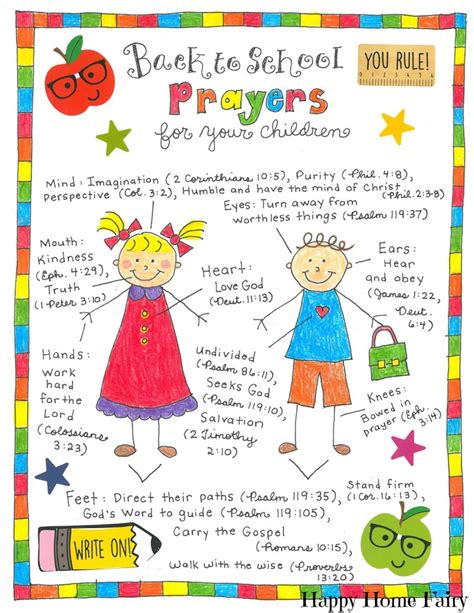 Back to School
Prayers
for your children
YOU RULE!
Mind: Imagination (2 Corinthians 10:5), Purity (Phil. 4:8),
perspective (Col. 3:2), Humble and have the mind of Christ (Phil. 2:3-8)
Eyes: Turn away from
worthless things (Psalm 119:37)
Mouth:
Kindness
(Eph. 4:29),
Truth
(1 Peter 3:10)
Heart:
Love God
(Deut. 11:13)
Ears:
Hear
and obey
(James 1:22,
Deut.
6:4)
Hands:
Work
hard
for the
Lord
(Colossians
3:23)
Undivided
(Psalm 86:11)
Seeks God
(Psalm 119:10)
Salvation
(2 Timothy
2:10)
Knees:
Bowed in
prayer (Eph.
3:14)
Feet: Direct their paths (Psalm 119:35),
God's Word to guide (Psalm 119:105),
Stand firm
(1 Cor. 16:13),
Carry the Gospel
(Romans 10:15),
Walk with the wise (Proverbs
13:20)
WRITE ON!
Happy Home Fairy